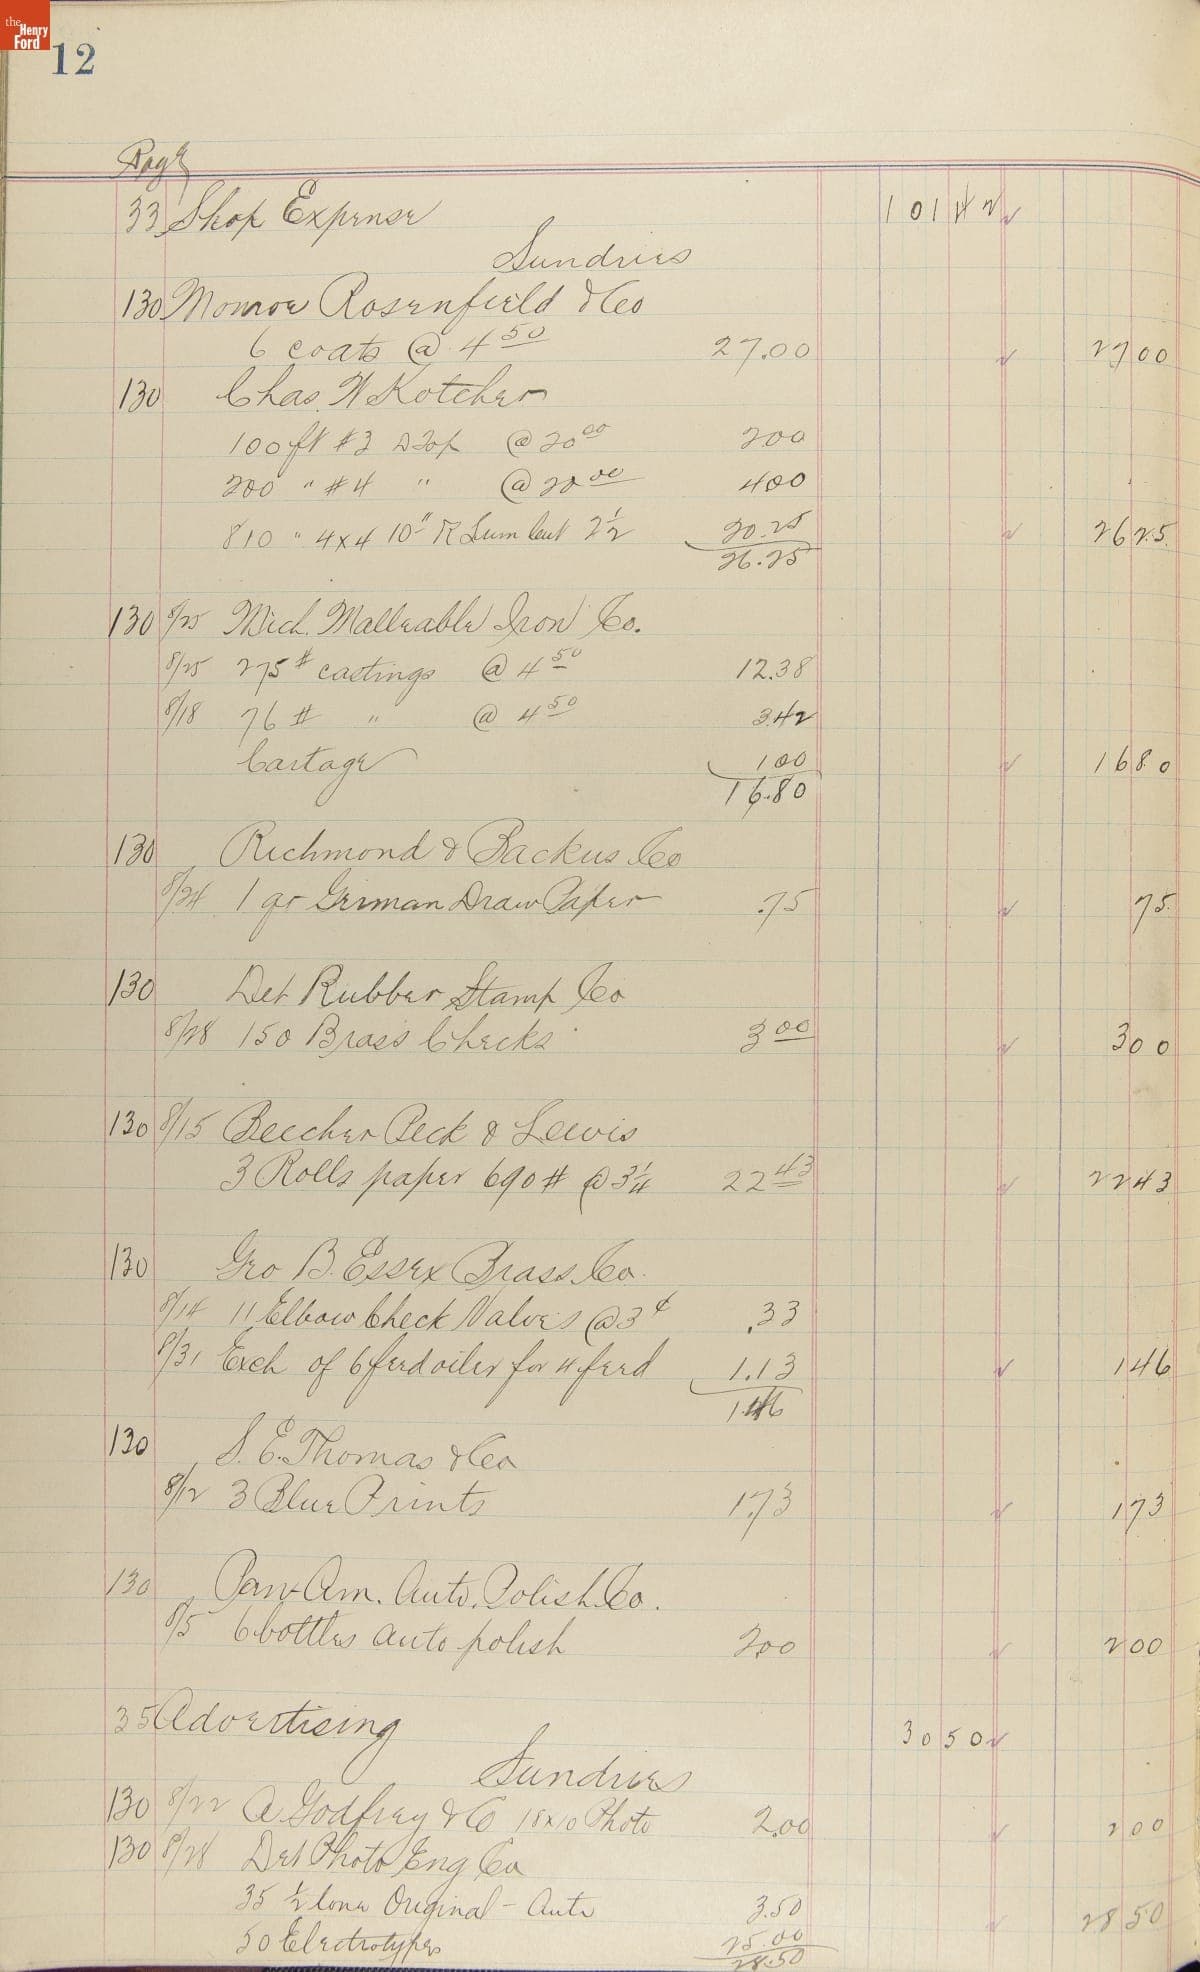 the Henry Ford
12
Page
33 Shop Expense 101 42
Sundries
130 Monroe Rosenfield & Co
6 coats @ 4 50 27.00 27 00
130 Chas. W Kotcher
100 ft #3 @ 20 00 200
200 " #4 " @ 20 00 400
810 " 4x4 10" R Lum cut 2 1/2 20.25 26 25
26.25
130 8/25 Mich. Malleable Iron Co.
8/25 275# castings @ 4 50 12.38
8/18 76 # " @ 4 50 3.42
Cartage 1 00 16 80
16.80
130 Richmond & Backus Co
8/24 1 qr German Draw Paper .75 75
130 Det Rubber Stamp Co
8/28 150 Brass Checks 3 00 3 00
130 8/15 Beecher Peck & Lewis
3 Rolls paper 690 # @ 3 1/4 22 43 22 43
130 Geo B. Essex Brass. Co.
8/14 11 Elbow Check Valves @ 3 ¢ .33
8/31 Exch of 6 feed oiler for 4 feed 1.13 1 46
1.46
130 S. E. Thomas & Co
8/12 3 Blue Prints 1.73 1 73
130 Pan-Am. Auto. Polish. Co.
8/5 6 bottles auto polish 2.00 2 00
35 Advertising 30 50
Sundries
130 8/22 A Godfrey & Co 18x10 Photo 2.00 2 00
130 8/28 Det Photo Eng Co
35 1/2 tone Original - Auto 3.50 28 50
50 Electrotypes 25.00
28.50